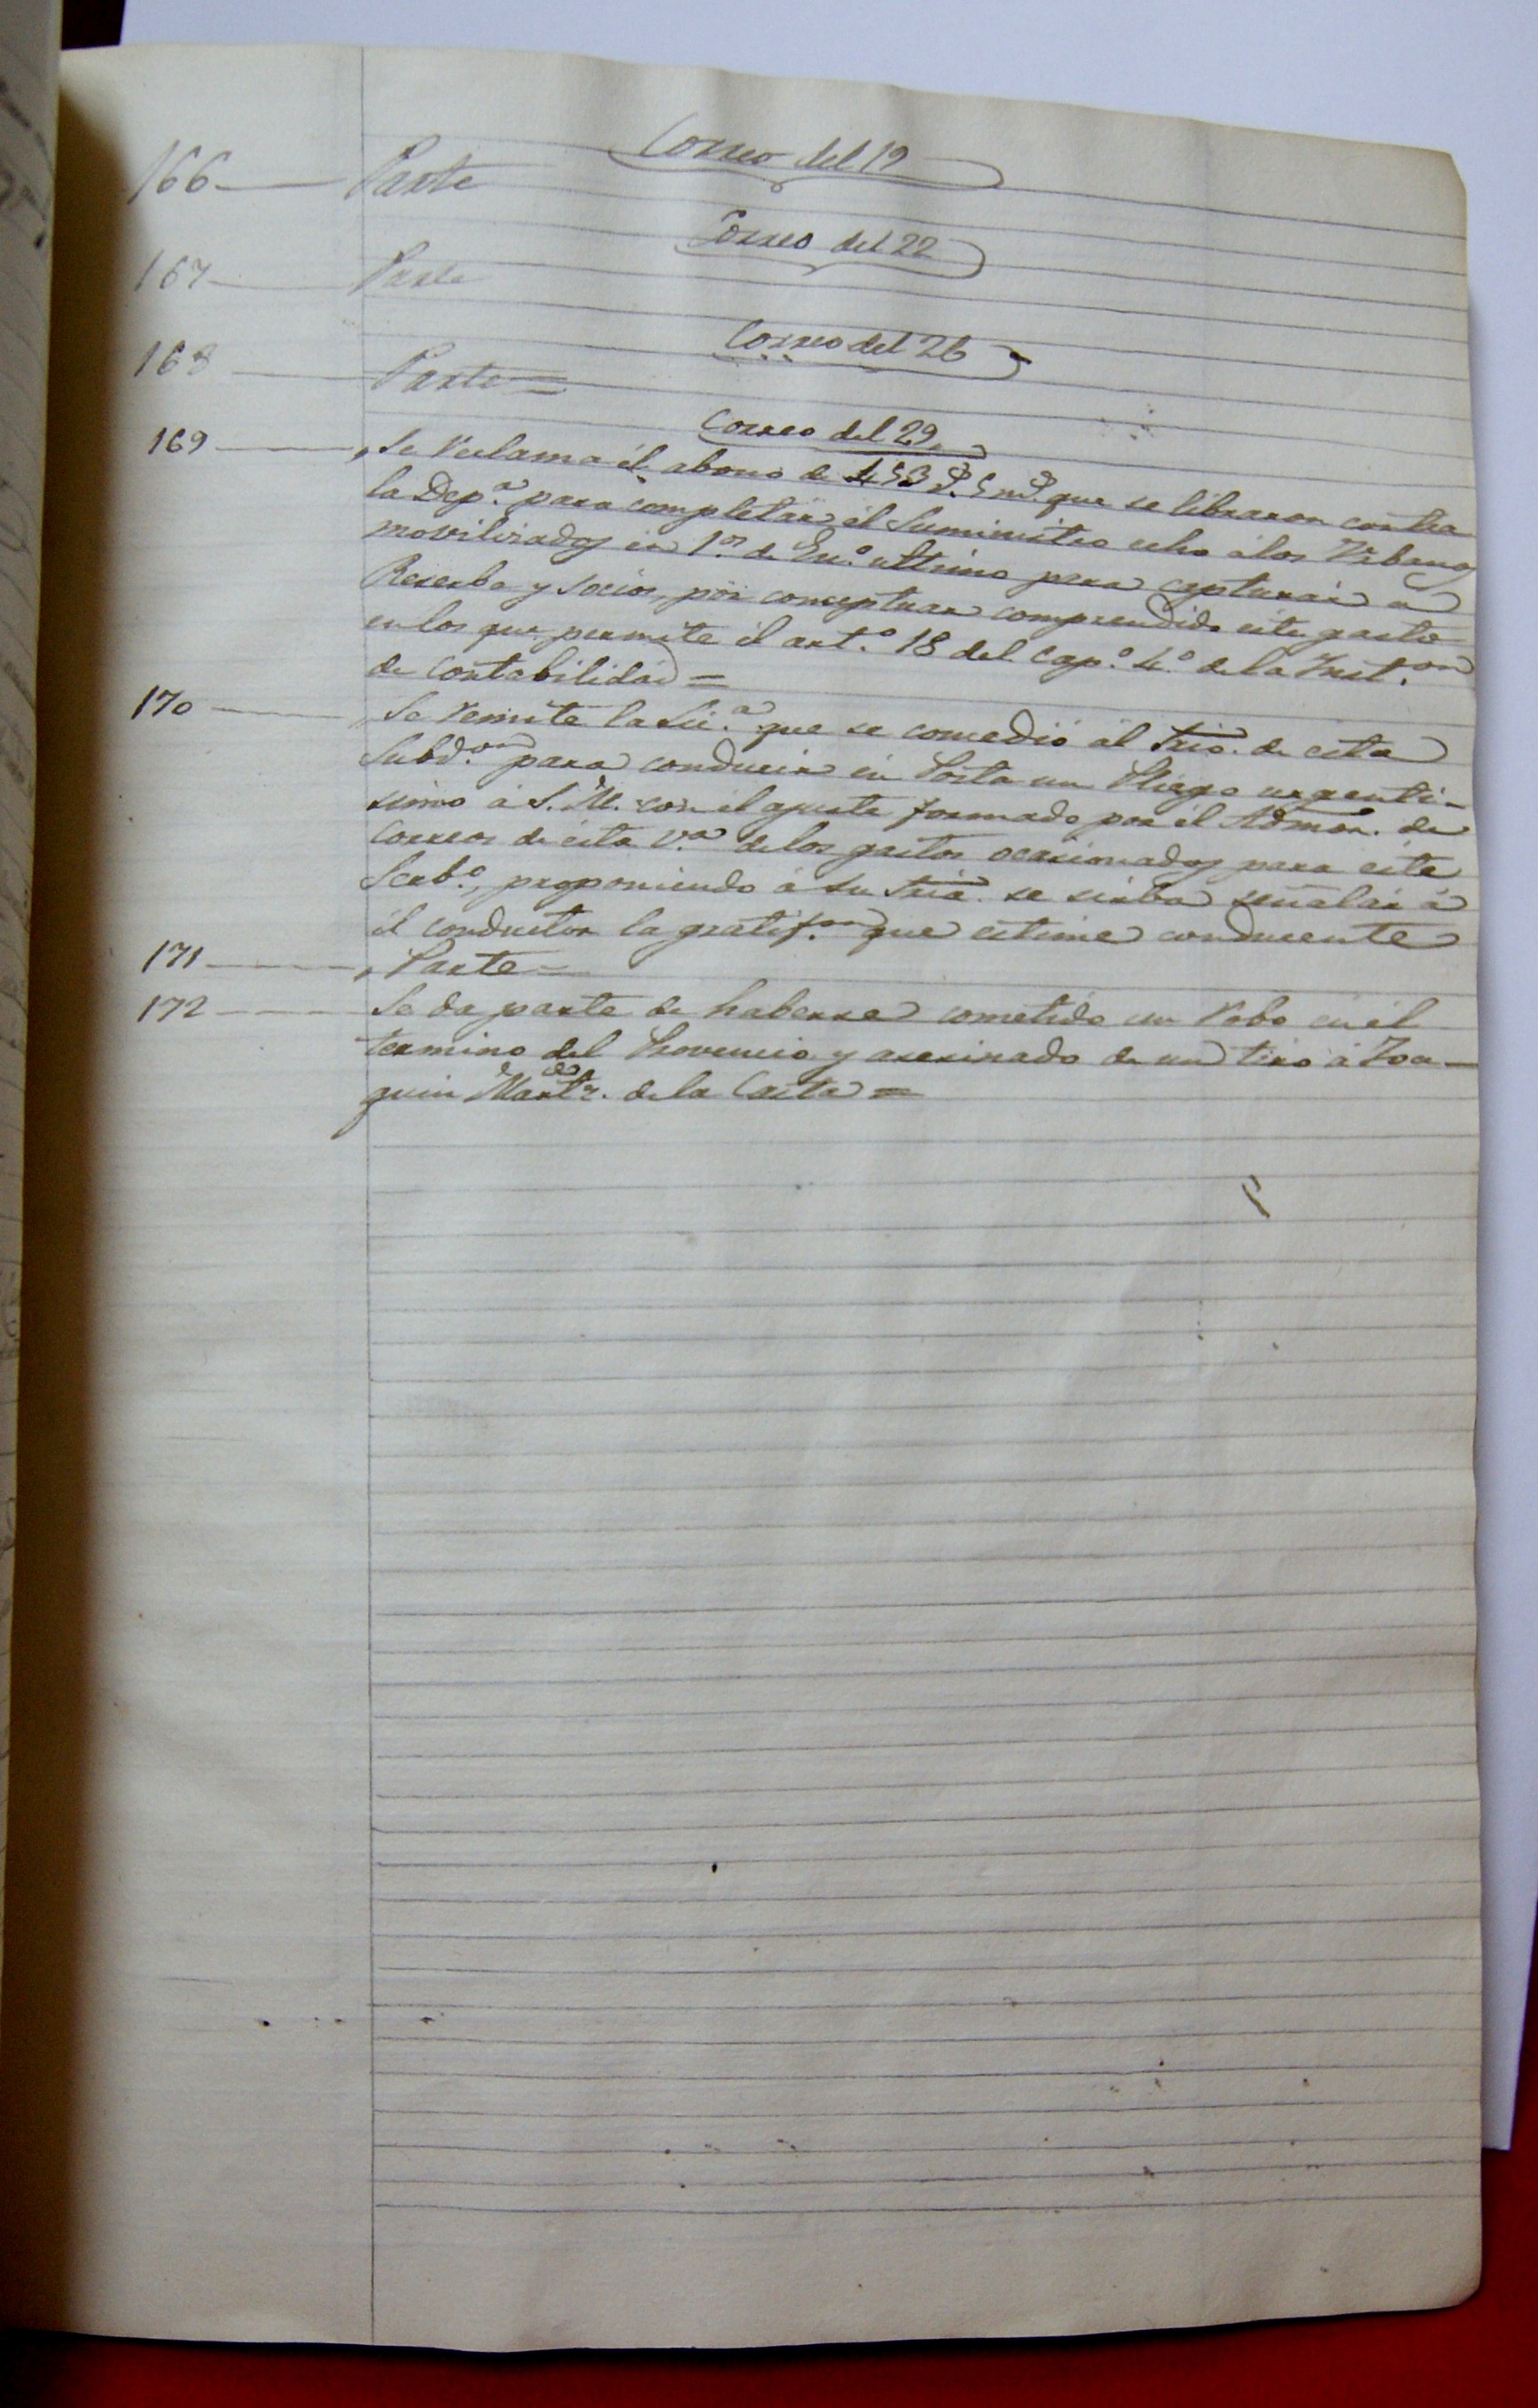 Correo del 19
166 — Parte
Correo del 22
167 — Parte
Correo del 26
168 — Parte =
Correo del 29
169 — Se reclama él abono de 453 r.s 5 m.s que se libraron contra
la Dep.ª para completar él Suministro echo á los Urbanos
movilizados en 1.º de En.º ultimo para capturár á
Reserba y socios, por conceptuar comprendido éste gasto
en los que permite él art.º 18 del cap.º 4.º de la Inst.on
de contabilidad =
170 — Se remite la Lic.ª que se concedió al Srio. de esta
Subd.on para conducir en Posta un Pliego urgenti-
simo á S. M. con él ajuste formado por él Admor. de
Correos de ésta V.ª de los gastos ocasionados para éste
Serb.º, proponiendo á Su Sria. se sirba señalár á
él conductor la gratif.on que estime conducente
171 — Parte =
172 — Se da parte de haberse cometido un robo en él
termino del Provencio y asesinado de un tiro á Joa-
quin Martz. de la Casta =